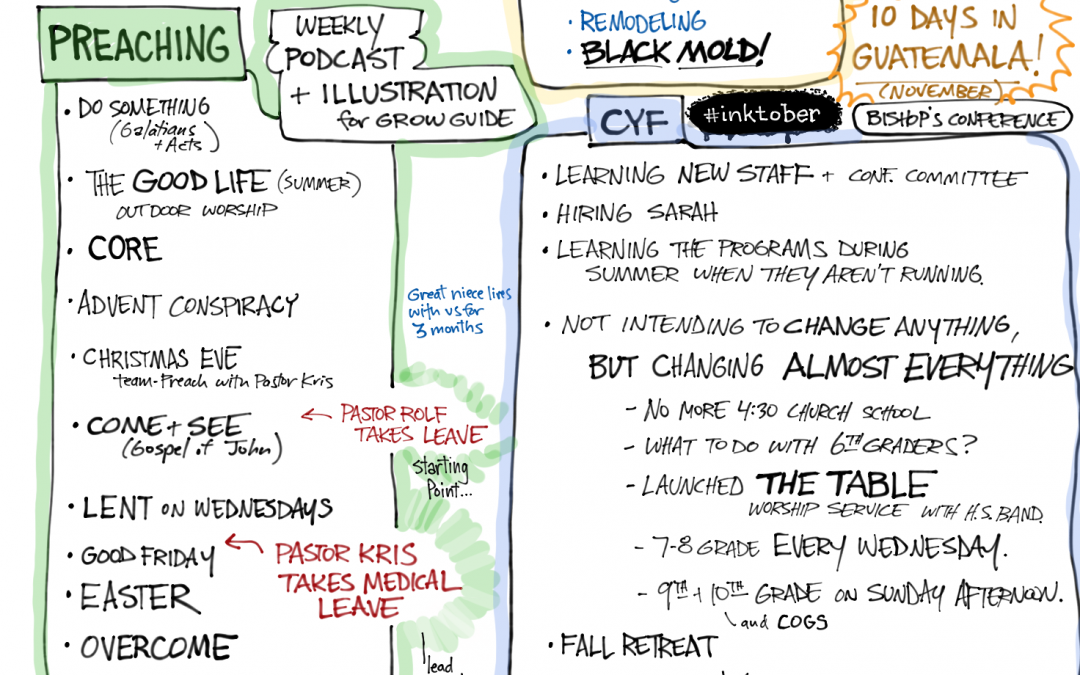 PREACHING
• DO SOMETHING
(Galatians
+ Acts)
• THE GOOD LIFE (SUMMER)
OUTDOOR WORSHIP
• CORE
• ADVENT CONSPIRACY
• CHRISTMAS EVE
team-Preach with Pastor Kris
• COME + SEE
(Gospel of John)
← PASTOR ROLF
TAKES LEAVE
• LENT ON WEDNESDAYS
• GOOD FRIDAY
← PASTOR KRIS
TAKES MEDICAL
LEAVE
• EASTER
• OVERCOME
WEEKLY
PODCAST
+ ILLUSTRATION
for GROW GUIDE
Great niece lives
with us for
3 months
starting
Point...
lead
• REMODELING
• BLACK MOLD!
10 DAYS IN
GUATEMALA!
(NOVEMBER)
CYF
#inktober
BISHOP'S CONFERENCE
• LEARNING NEW STAFF + CONF. COMMITTEE
• HIRING SARAH
• LEARNING THE PROGRAMS DURING
SUMMER WHEN THEY AREN'T RUNNING.
• NOT INTENDING TO CHANGE ANYTHING,
BUT CHANGING ALMOST EVERYTHING
- NO MORE 4:30 CHURCH SCHOOL
- WHAT TO DO WITH 6TH GRADERS?
- LAUNCHED THE TABLE
WORSHIP SERVICE WITH H.S. BAND.
- 7-8 GRADE EVERY WEDNESDAY.
- 9TH + 10TH GRADE ON SUNDAY AFTERNOON.
and COGS
• FALL RETREAT